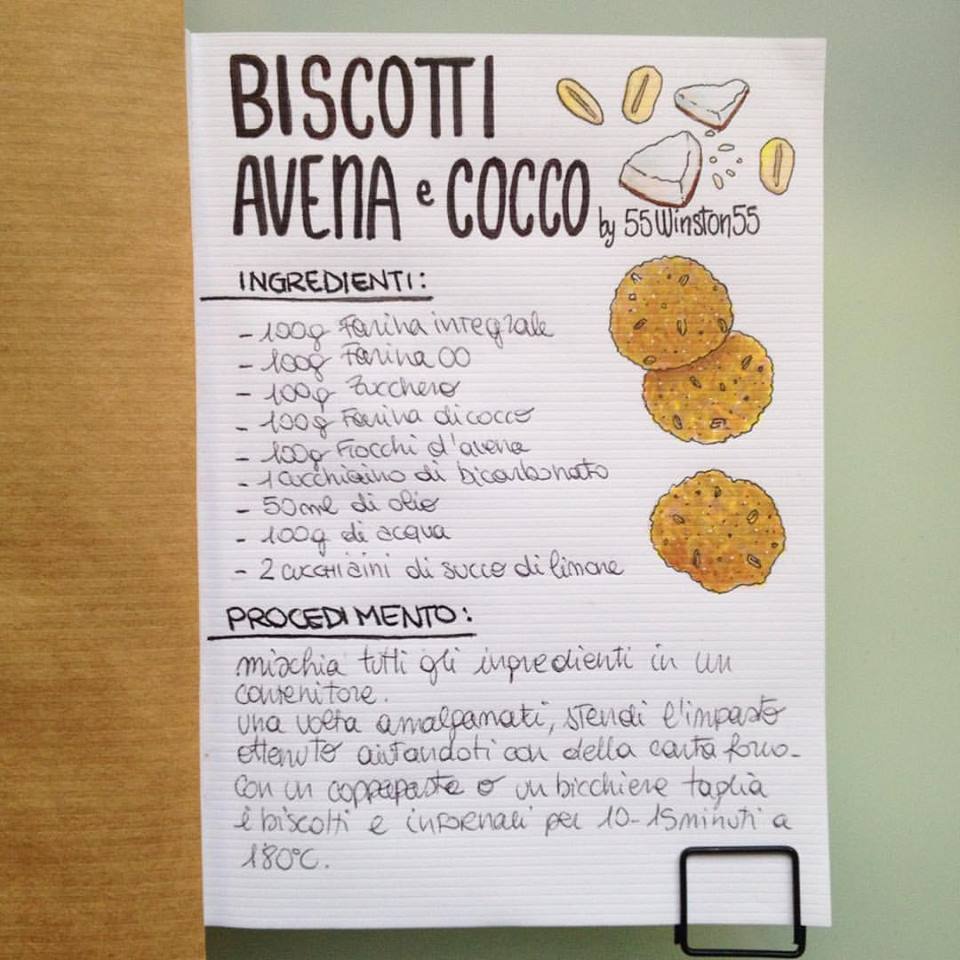 BISCOTTI
AVENA e COCCO
by 55Winston55
INGREDIENTI:
- 100g Farina integrale
- 100g Farina 00
- 100g Zucchero
- 100g Farina di cocco
- 100g Fiocchi d'avena
- 1 cucchiaino di bicarbonato
- 50ml di olio
- 100g di acqua
- 2 cucchiaini di succo di limone
PROCEDIMENTO:
mischia tutti gli ingredienti in un
contenitore.
una volta amalgamati, stendi l'impasto
ottenuto aiutandoti con della carta forno.
con un coppapasta o un bicchiere taglia
i biscotti e infornali per 10-15minuti a
180°C.